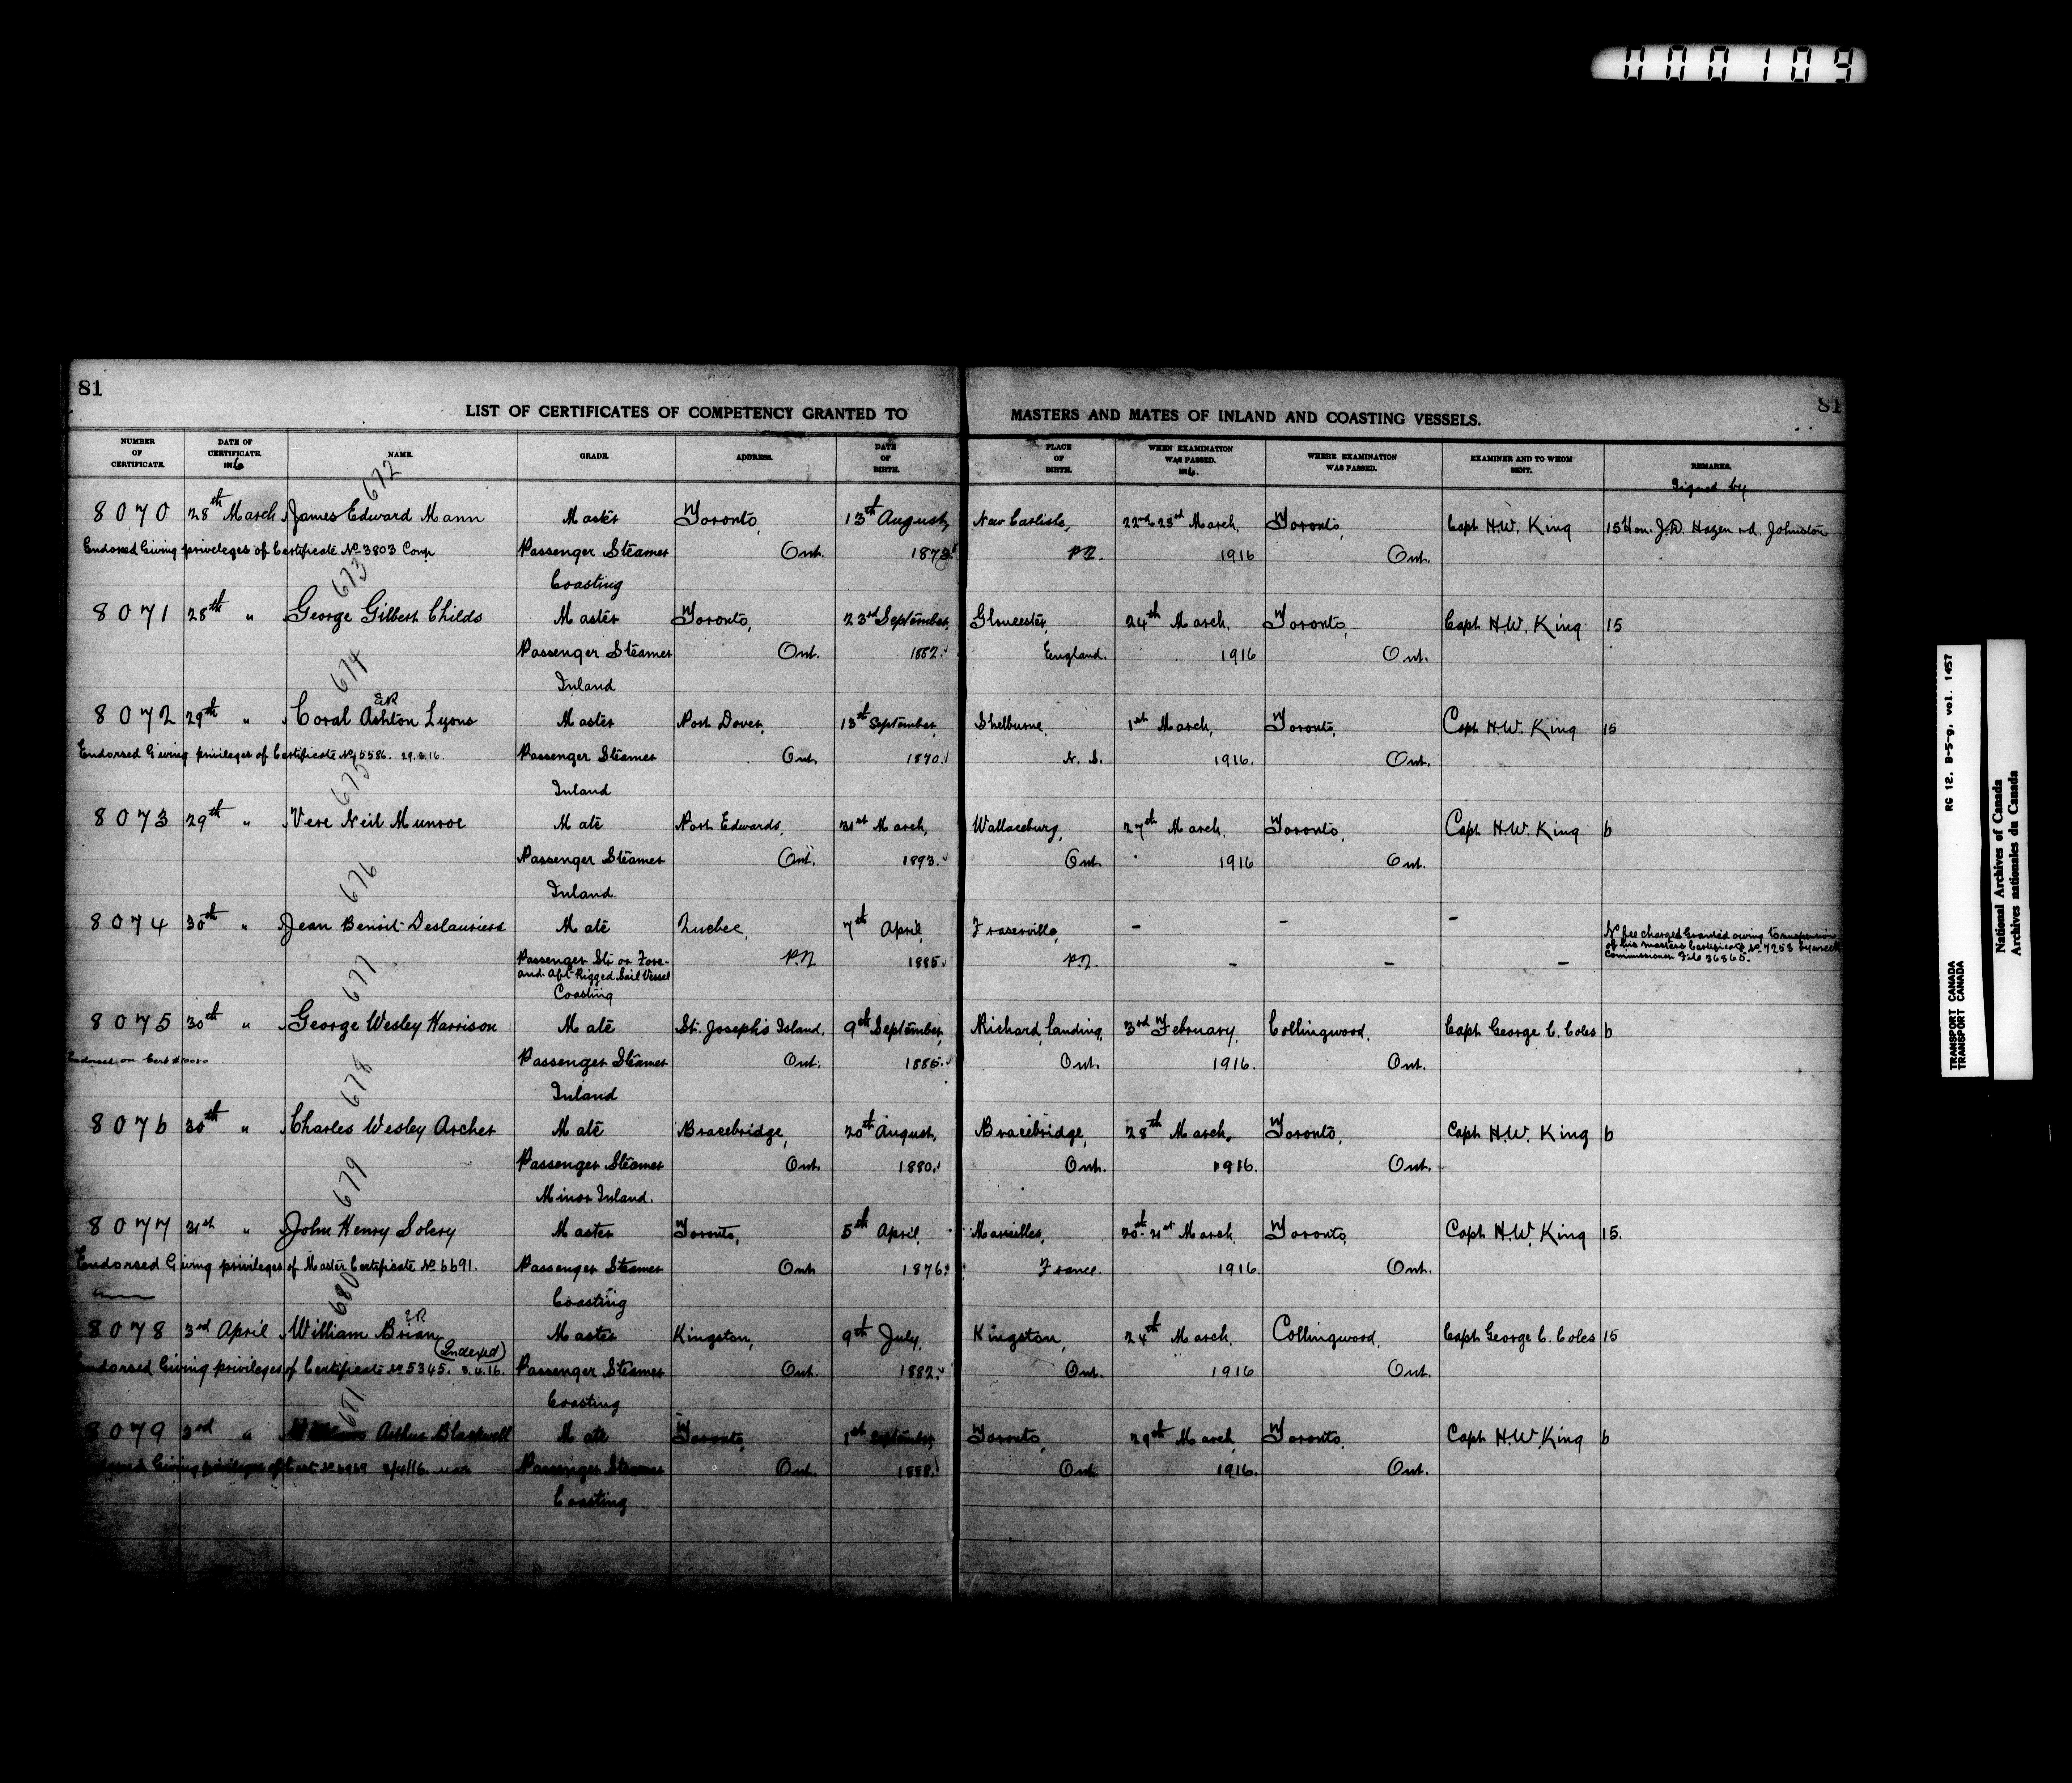 000109
81
81
LIST OF CERTIFICATES OF COMPETENCY GRANTED TO MASTERS AND MATES OF INLAND AND COASTING VESSELS.
NUMBER OF CERTIFICATE. DATE OF CERTIFICATE. 1916 NAME. GRADE. ADDRESS. DATE OF BIRTH. PLACE OF BIRTH. WHEN EXAMINATION WAS PASSED. 1916. WHERE EXAMINATION WAS PASSED. EXAMINER AND TO WHOM SENT. REMARKS.
Signed by
672
8070 28th March James Edward Mann Master Toronto, 13th August, New Carlisle, 22nd-23rd March, Toronto, Capt H.W. King 15 Hon. J.D. Hazen Johnston
Endorsed Giving privileges of Certificate No 3803 Comp Passenger Steamer Ont. 1873. P.Q. 1916 Ont.
Coasting
673
8071 28th " George Gilbert Childs Master Toronto, 23rd September, Gloucester, 24th March, Toronto, Capt H.W. King 15
Passenger Steamer Ont. 1882. England. 1916 Ont.
Inland
674
8072 29th " Coral Ashton Lyons Master Port Dover, 13th September, Shelburne, 1st March, Toronto, Capt H.W. King 15
Endorsed Giving privileges of Certificate No 5586. 29.3.16. Passenger Steamer Ont. 1870. N.S. 1916. Ont.
Inland
675
8073 29th " Vere Neil Munroe Mate Port Edwards, 31st March, Wallaceburg, 27th March, Toronto, Capt H.W. King 6
Passenger Steamer Ont. 1893. Ont. 1916 Ont.
Inland
676
8074 30th " Jean Benoit Deslauriers Mate Quebec, 7th April, Fraserville, - - - No fee charged Granted owing to suspension
of his masters Certificate No 7258 by wreck
Passenger Str or Fore- P.Q. 1885. P.Q. - - - Commissioner File 36865.
and-Aft-Rigged Sail Vessel
Coasting
677
8075 30th " George Wesley Harrison Mate St. Joseph's Island, 9th September, Richard Landing, 3rd February, Collingwood, Capt George C. Coles 6
Passenger Steamer Ont. 1885. Ont. 1916. Ont.
Inland
678
8076 30th " Charles Wesley Archer Mate Bracebridge, 20th August, Bracebridge, 28th March, Toronto, Capt H.W. King 6
Passenger Steamer Ont. 1880. Ont. 1916. Ont.
Minor Inland.
679
8077 31st " John Henry Solery Master Toronto, 5th April, Marseilles, 20th-21st March Toronto, Capt H.W. King 15.
Endorsed Giving privileges of Master Certificate No 6691. Passenger Steamer Ont 1876. France. 1916. Ont.
Coasting
680
8078 3rd April William Brian Master Kingston, 9th July, Kingston, 24th March, Collingwood, Capt George C. Coles 15
(Indexed)
Endorsed Giving privileges of Certificate No 5345. 3.4.16. Passenger Steamer Ont. 1882. Ont. 1916 Ont.
Coasting
681
8079 3rd " Arthur Blackwell Mate Toronto, 1st September, Toronto, 29th March, Toronto, Capt H.W. King 6
Giving privileges of Cert No 6969 3/4/16. Passenger Steamer Ont. 1888. Ont 1916. Ont.
Coasting
RG 12, B-5-g, vol. 1457
TRANSPORT CANADA
TRANSPORT CANADA
National Archives of Canada
Archives nationales du Canada